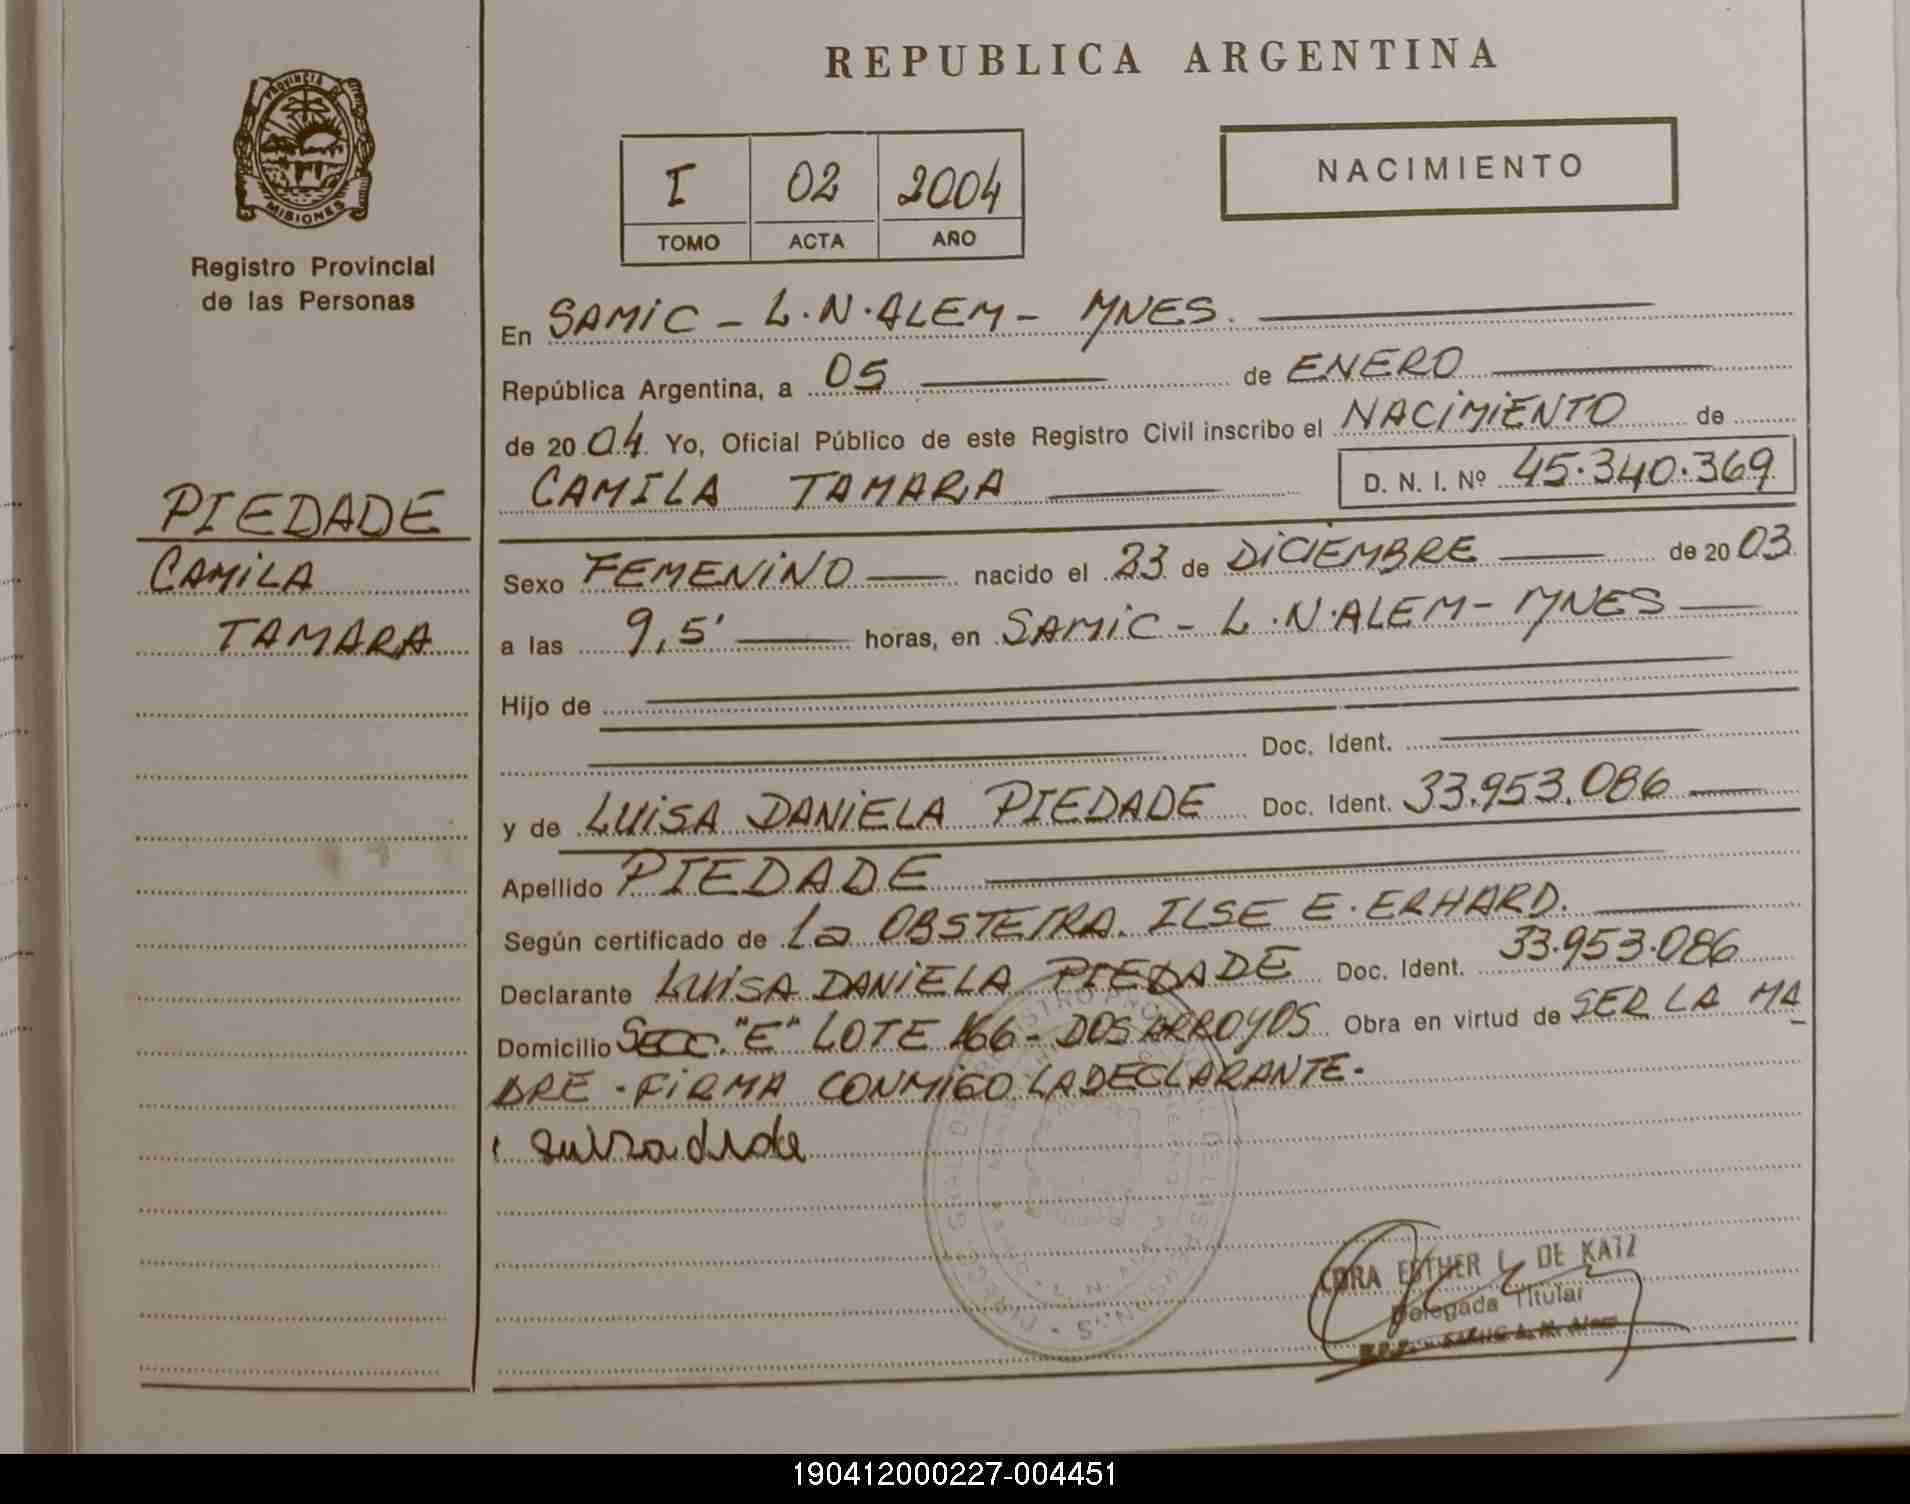 REPUBLICA ARGENTINA
PROVINCIA DE
MISIONES
Registro Provincial
de las Personas
I 02 2004
TOMO ACTA AÑO
NACIMIENTO
PIEDADE
CAMILA
TAMARA
En SAMIC - L.N.ALEM - MNES.
República Argentina, a 05 de ENERO
de 2004. Yo, Oficial Público de este Registro Civil inscribo el NACIMIENTO de
CAMILA TAMARA D. N. I. Nº 45.340.369
Sexo FEMENINO nacido el 23 de DICIEMBRE de 2003
a las 9,5' horas, en SAMIC - L.N.ALEM - MNES
Hijo de
Doc. Ident.
y de LUISA DANIELA PIEDADE Doc. Ident. 33.953.086
Apellido PIEDADE
Según certificado de La OBSTETRA. ILSE E. ERHARD.
Declarante LUISA DANIELA PIEDADE Doc. Ident. 33.953.086
Domicilio SECC. "E" LOTE 166 - DOS ARROYOS Obra en virtud de SER LA MA
DRE - FIRMA CONMIGO LA DECLARANTE.-
CDRA ESTHER L. DE KATZ
Delegada Titular
190412000227-004451